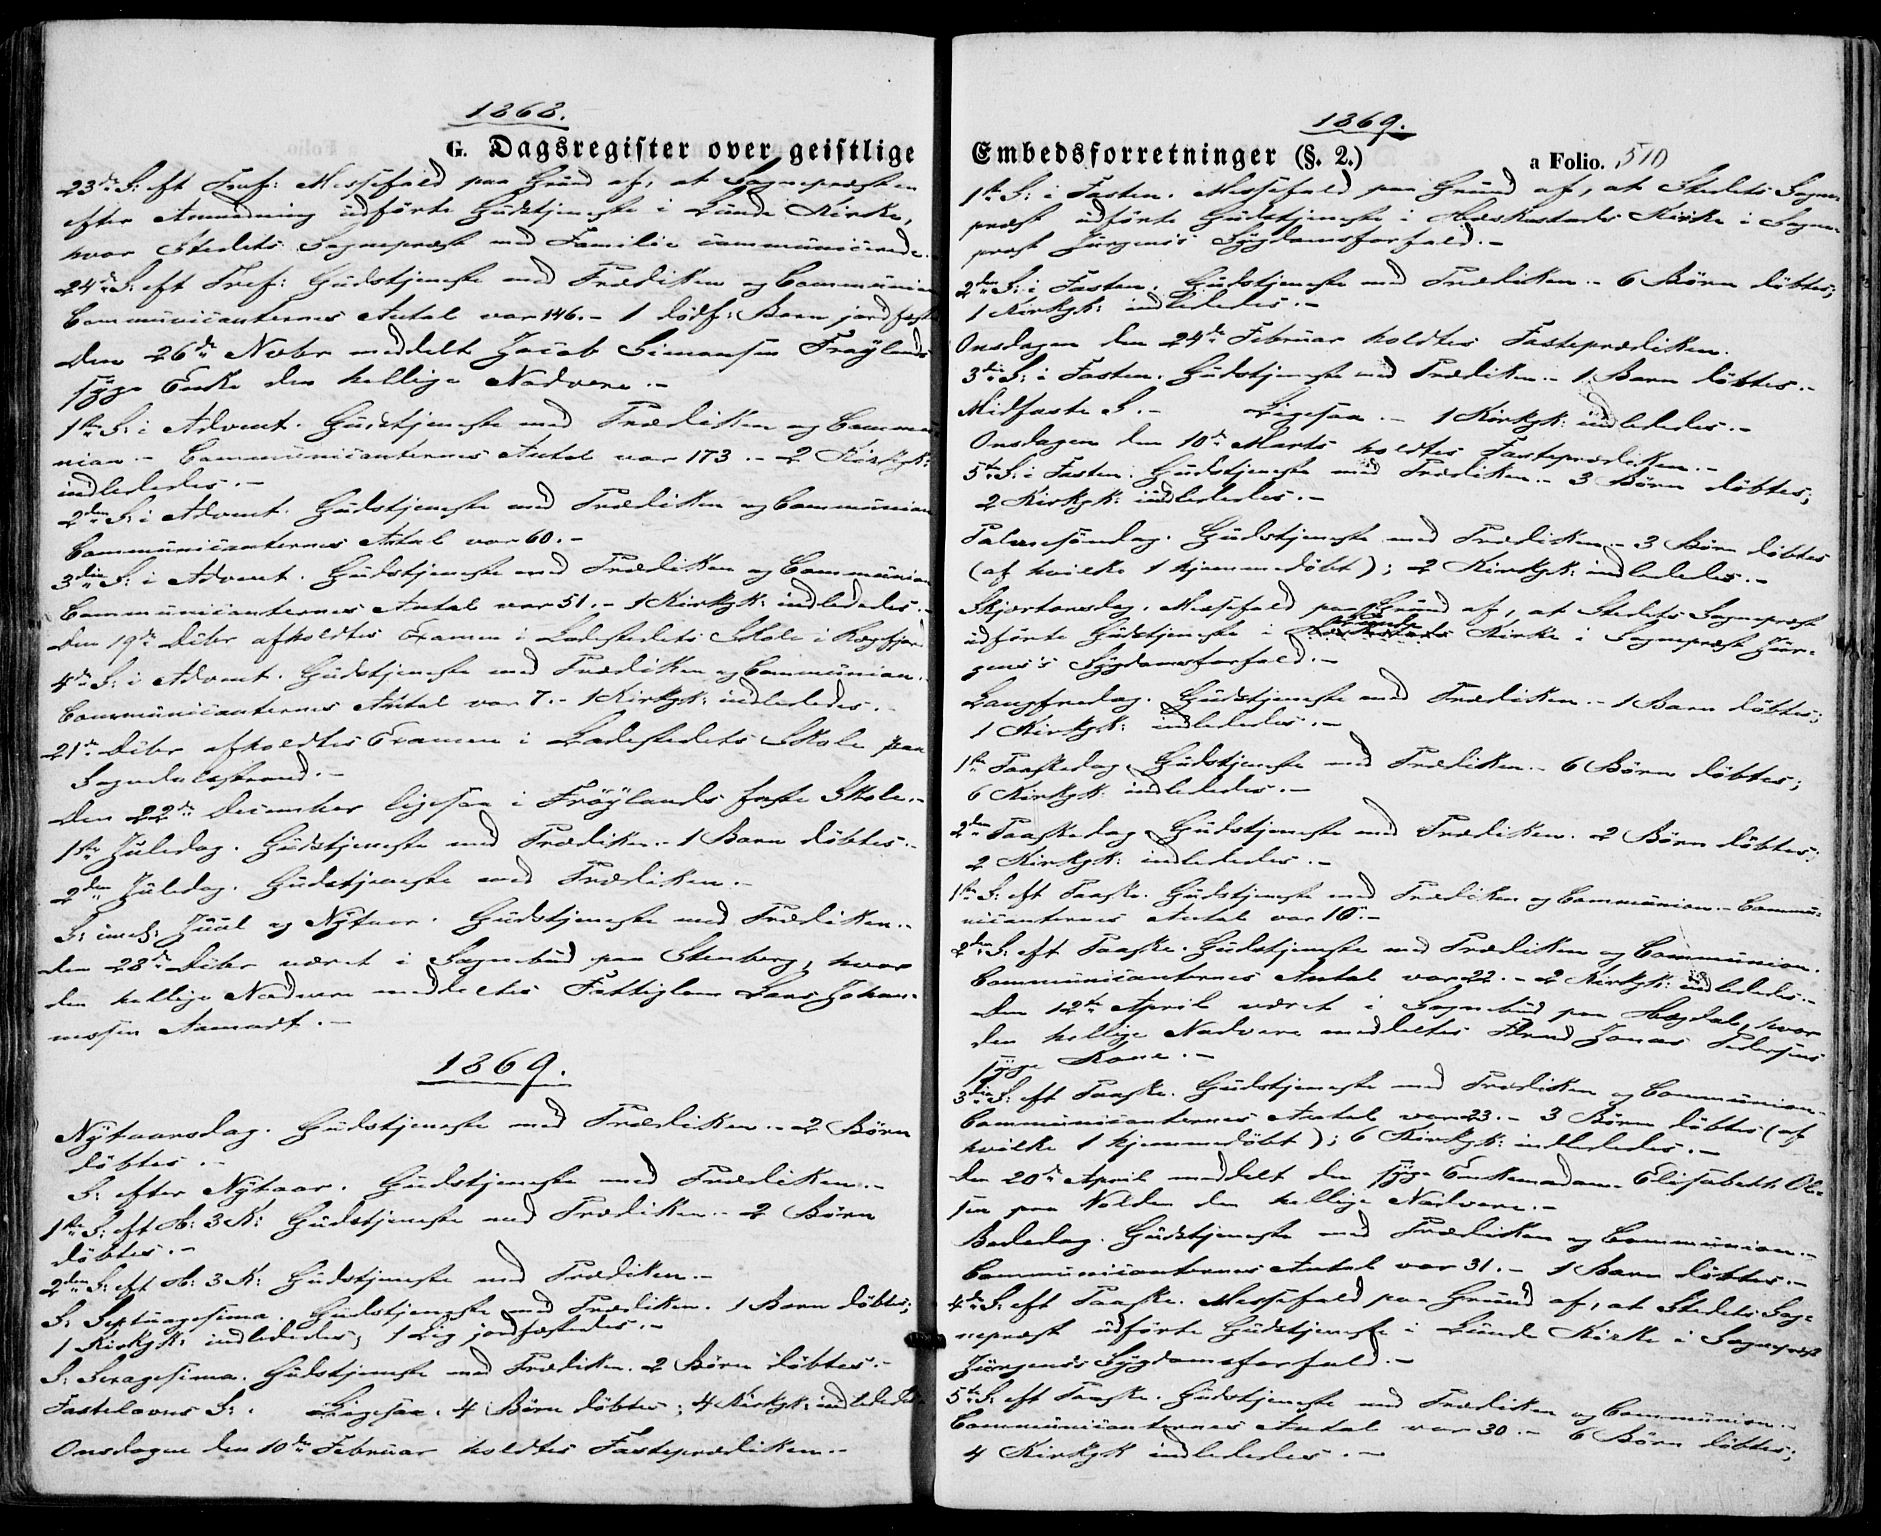 1868.
G. Dagsregister over geistlige
23de S: eft Tref: Messefald paa Grund af, at Sognepræsten
efter Anmodning udförte Gudstjeneste i Lunde Kirke,
hvor Stedets Sognepræst med Familie communicerede.
24de S: eft Tref: Gudstjeneste med Prædiken og Communion
Communicanternes Antal var 146. - 1 dödf: Barn jordfæst
Den 26de Novbr meddelt Jacob Simonsen Fröylands
syge Enke den hellige Nadvere. -
1ste S: i Advent. Gudstjeneste med Prædiken og Commu-
nion. - Communicanternes Antal var 173. - 2 Kirkgk:
indlededes. -
2den S: i Advent. Gudstjeneste med Prædiken og Communion
Communicanternes Antal var 60. -
3die S: i Advent. Gudstjeneste med Prædiken og Communion
Communicanternes Antal var 51. - 1 Kirkgk: indlededes. -
Den 19de Dcbr afholdtes Examen i Ladestedets Skole i Rægefjord
4de S: i Advent. Gudstjeneste med Prædiken og Communion. -
Communicanternes Antal var 7. - 1 Kirkgk: indlededes. -
21de Dcbr afholdtes Examen i Ladestedets Skole paa
Sogndalsstrand. -
Den 22de December ligesaa i Fröylands faste Skole. -
1ste Juledag. Gudstjeneste med Prædiken. - 1 Barn döbtes. -
2den Juledag. Gudstjeneste med Prædiken. -
S: imell: Juul og Nytaar. Gudstjeneste med Prædiken. -
Den 28de Dcbr været i Sognebud paa Stenberg, hvor
den hellige Nadvere meddeltes Fattiglem Lars Johan-
nessen Aamodt. -
1869.
Nytaarsdag. Gudstjeneste med Prædiken. - 2 Börn
döbtes. -
S: efter Nytaar. Gudstjeneste med Prædiken. -
1ste S: eft H: 3 K: Gudstjeneste med Prædiken. - 2 Börn
döbtes. -
2den S: eft H: 3 K: Gudstjeneste med Prædiken. -
S: Septuagesima. Gudstjeneste med Prædiken. 1 Barn döbtes;
1 Kirkgk: indlededes; 1 Lig jordfæstedes. -
S: Sexagesima. Gudstjeneste med Prædiken. 2 Börn döbtes. -
Fastelavns S: . Ligesaa. 4 Börn döbtes; 4 Kirkgk: indlededes
Onsdagen den 10de Februar holdtes Fasteprædiken. -
1869.
Embedsforretninger (§. 2.) a Folio. 510
1ste S: i Fasten. Messefald paa Grund af, at Stedets Sogne-
præst udförte Gudstjeneste i Heskestads Kirke i Sogne-
præst Jürgens's Sygdomsforfald. -
2den S: i Fasten. Gudstjeneste med Prædiken. - 6 Börn döbtes;
1 Kirkgk: indlededes. -
Onsdagen den 24de Februar holdtes Fasteprædiken.
3die S: i Fasten. Gudstjeneste med Prædiken. - 1 Barn döbtes. -
Midfaste S. - Ligesaa. - 1 Kirkgk: indlededes. -
Onsdagen den 10de Marts holdtes Fasteprædiken. -
5te S: i Fasten. Gudstjeneste med Prædiken. - 3 Börn döbtes;
2 Kirkgk: indlededes. -
Palmesöndag. Gudstjeneste med Prædiken. - 3 Börn döbtes
(af hvilke 1 hjemmedöbt); 2 Kirkgk: indlededes. -
Skjærtorsdag. Messefald paa Grund af, at Stedets Sognepræst
udförte Gudstjeneste i Lunde Kirke i Sognepræst Jür-
gens's Sygdomsforfald. -
Langfredag. Gudstjeneste med Prædiken. - 1 Barn döbtes;
1 Kirkgk: indlededes. -
1ste Paaskedag. Gudstjeneste med Prædiken. - 6 Börn döbtes;
6 Kirkgk: indlededes. -
2den Paaskedag. Gudstjeneste med Prædiken. 2 Börn döbtes;
2 Kirkgk: indlededes. -
1ste S: eft Paaske. Gudstjeneste med Prædiken og Communion. - Commu-
nicanternes Antal var 10. -
2den S: eft Paaske. Gudstjeneste med Prædiken og Communion.
Communicanternes Antal var 22. - 2 Kirkgk: indlededes. -
Den 12te April været i Sognebud paa Hægdal, hvor
den hellige Nadvere meddeltes Jonas Pedersens
syge Kone. -
3die S: eft Paaske. Gudstjeneste med Prædiken og Communion. -
Communicanternes Antal var 23. - 3 Börn döbtes (af
hvilke 1 hjemmedöbt); 6 Kirkgk: indlededes. -
Den 20de April meddelt den syge Enkemadam Elisabeth Ol-
sen paa Volden den hellige Nadvere. -
Bededag. Gudstjeneste med Prædiken og Communion. -
Communicanternes Antal var 31. - 1 Barn döbtes. -
4de S: eft Paaske. Messefald paa Grund af, at Stedets Sog-
nepræst udförte Gudstjeneste i Lunde Kirke i Sognepræst
Jürgens's Sygdomsforfald. -
5te S: eft Paaske. Gudstjeneste med Prædiken og Communion. -
Communicanternes Antal var 30. - 6 Börn döbtes;
4 Kirkgk indlededes. -